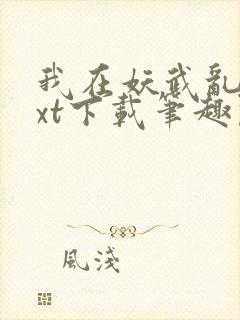 我在妖武亂
xt下載筆趣
風淺